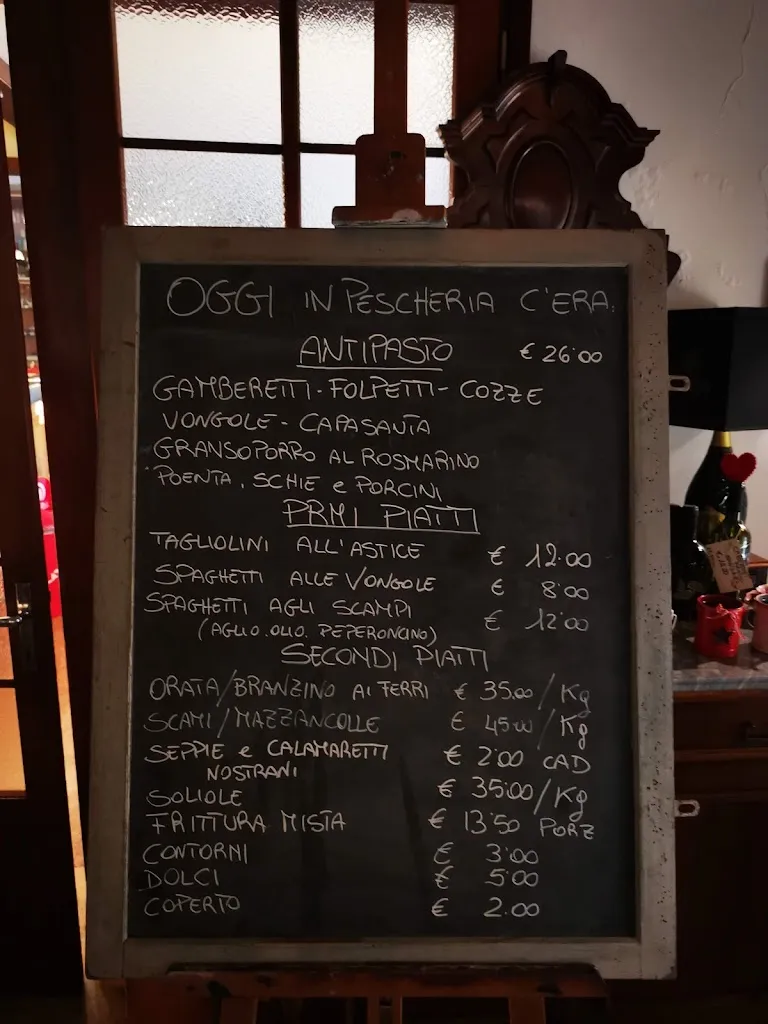 OGGI IN PESCHERIA C'ERA.
ANTIPASTO € 26.00
GAMBERETTI - FOLPETTI - COZZE
VONGOLE - CAPASANTA
GRANSOPORRO AL ROSMARINO
POENTA, SCHIE e PORCINI
PRMI PIATTI
TAGLIOLINI ALL'ASTICE € 12.00
SPAGHETTI ALLE VONGOLE € 8.00
SPAGHETTI AGLI SCAMPI € 12.00
(AGLIO.OLIO. PEPERONCINO)
SECONDI PIATTI
ORATA/BRANZINO AI FERRI € 35.00/Kg
SCAMI/MAZZANCOLLE € 45.00/Kg
SEPPIE e CALAMARETTI € 2.00 CAD
NOSTRANI
SOLIOLE € 35.00/Kg
FRITTURA MISTA € 13.50 PORZ
CONTORNI € 3.00
DOLCI € 5.00
COPERTO € 2.00